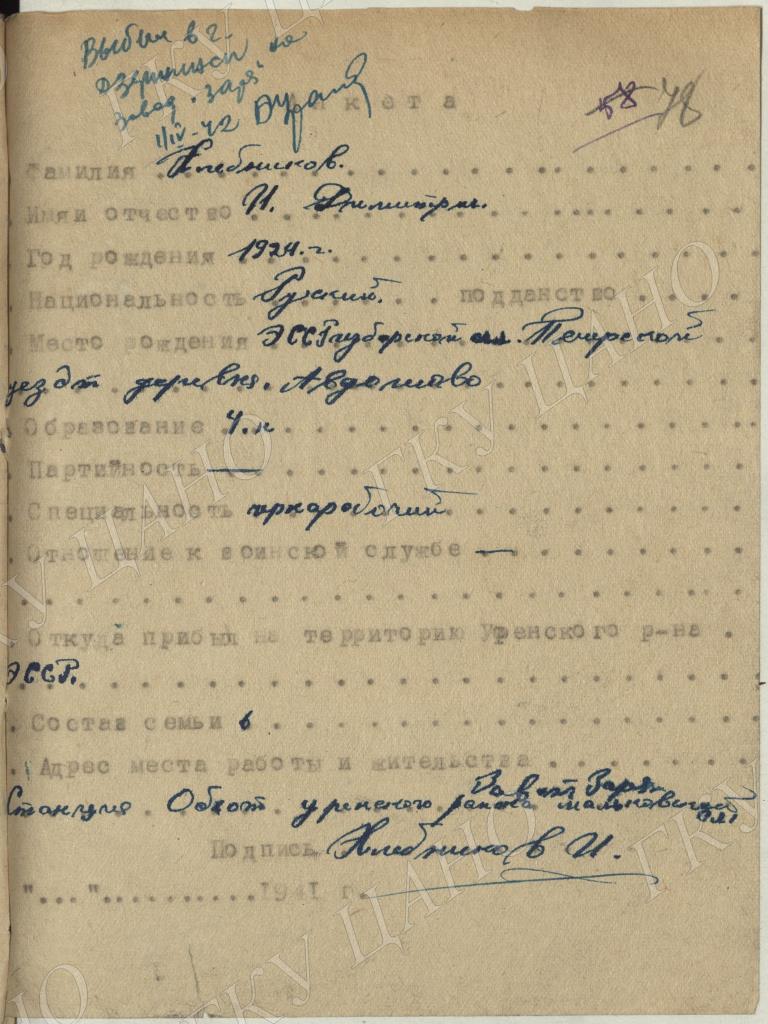 Выбыл в г.
Дзержинск на
завод "Заря"
1/IV-42
Анкета
58 78
Фамилия Хлебников.
Имя и отчество И. Димитры.
Год рождения 1924.г.
Национальность Руский. подданство
Место рождения ЭССР губерской Печерской
уездт деревня. Авдошово
Образование 4.к
Партийность —
Специальность чернорабочий
Отношение к воинской службе —
Откуда прибыл на территорию Уренского р-на
ЭССР.
Состав семьи 6
Адрес места работы и жительства
Завод Заря
Станция Обход уренского района
Подпись Хлебников И.
"..."..........1941 г.
ГКУ ЦАНО